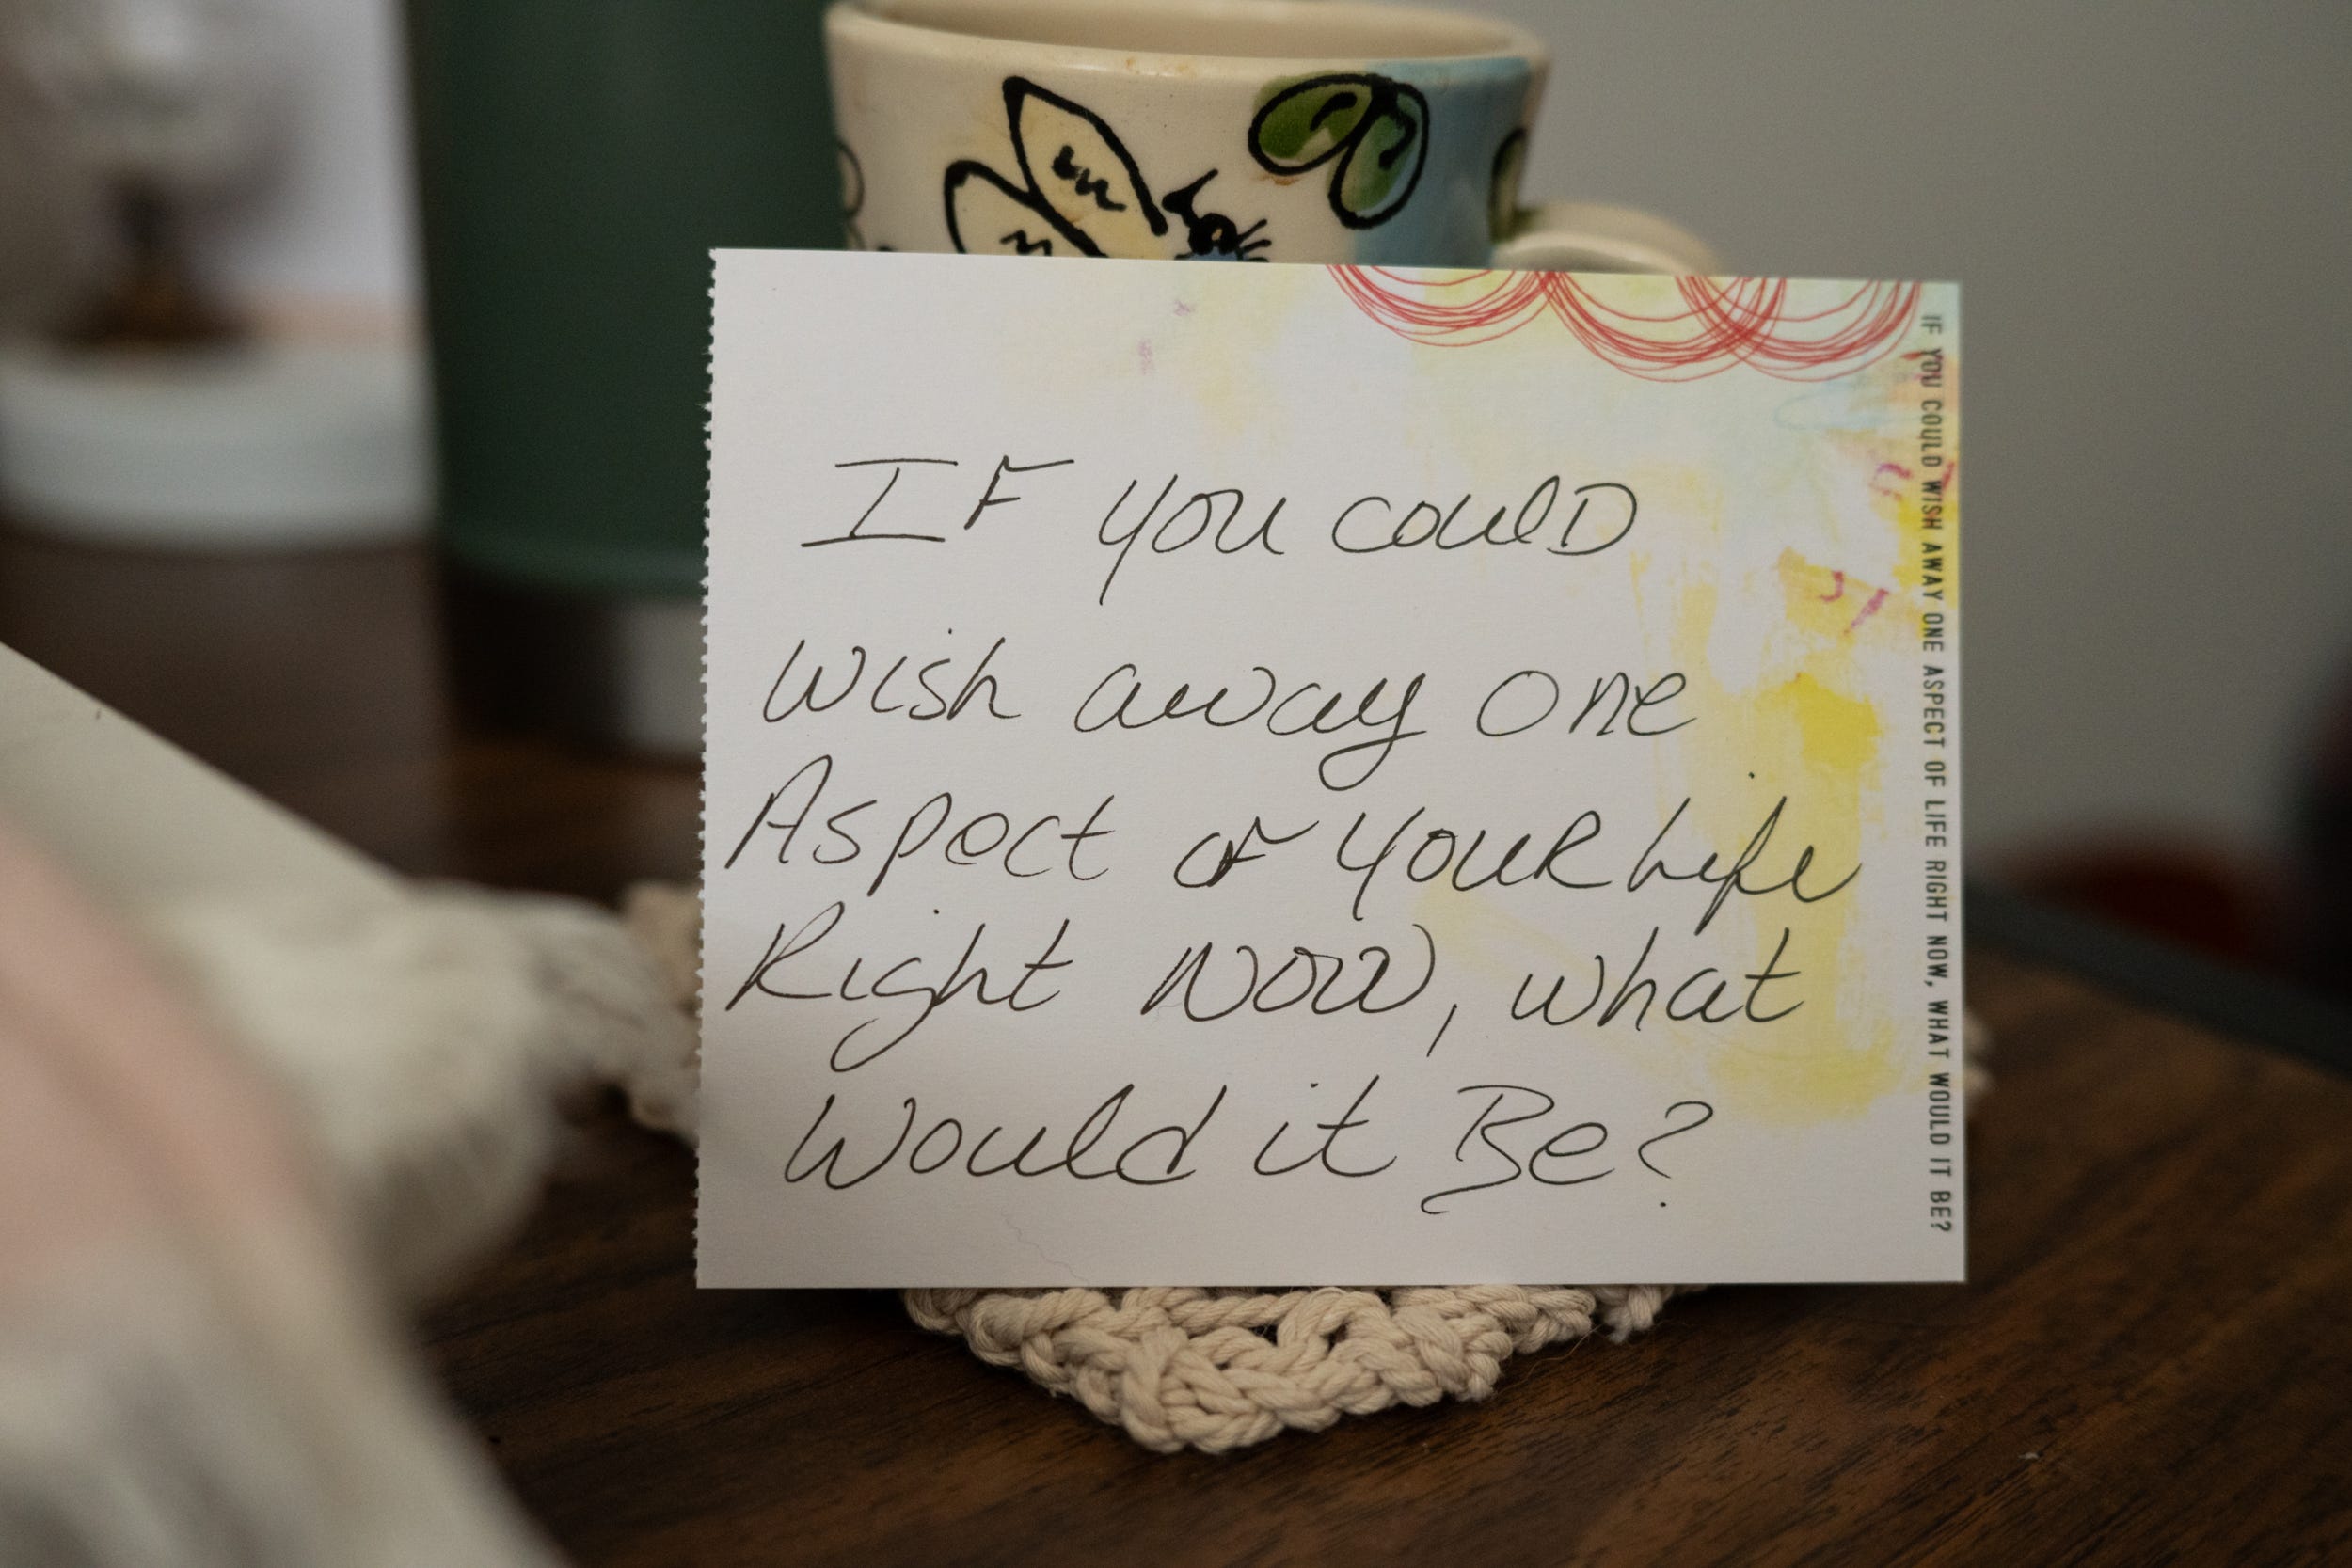 IF you coulD
wish away one
Aspect of YouR Life
Right Now, what
Would it Be?
IF YOU COULD WISH AWAY ONE ASPECT OF LIFE RIGHT NOW, WHAT WOULD IT BE?